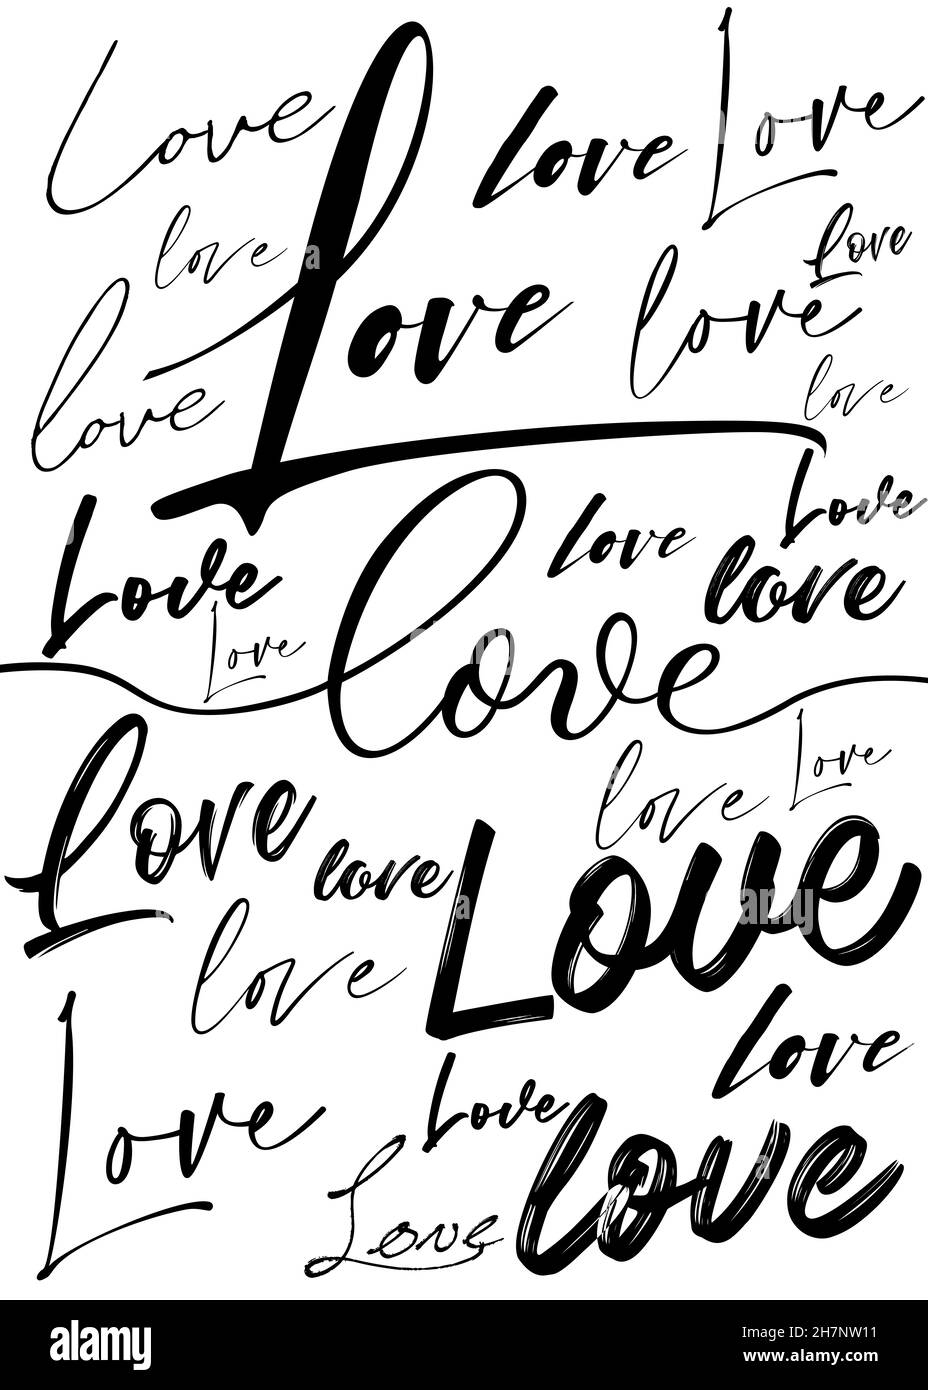 Love
Love
love
Love
love
Love
love
love
Love
love
Love
Love
Love
love
Love
love
Love
love
Love
love
Love
love
Love
Love
Love
Love
love
alamy
Image ID: 2H7NW11
www.alamy.com